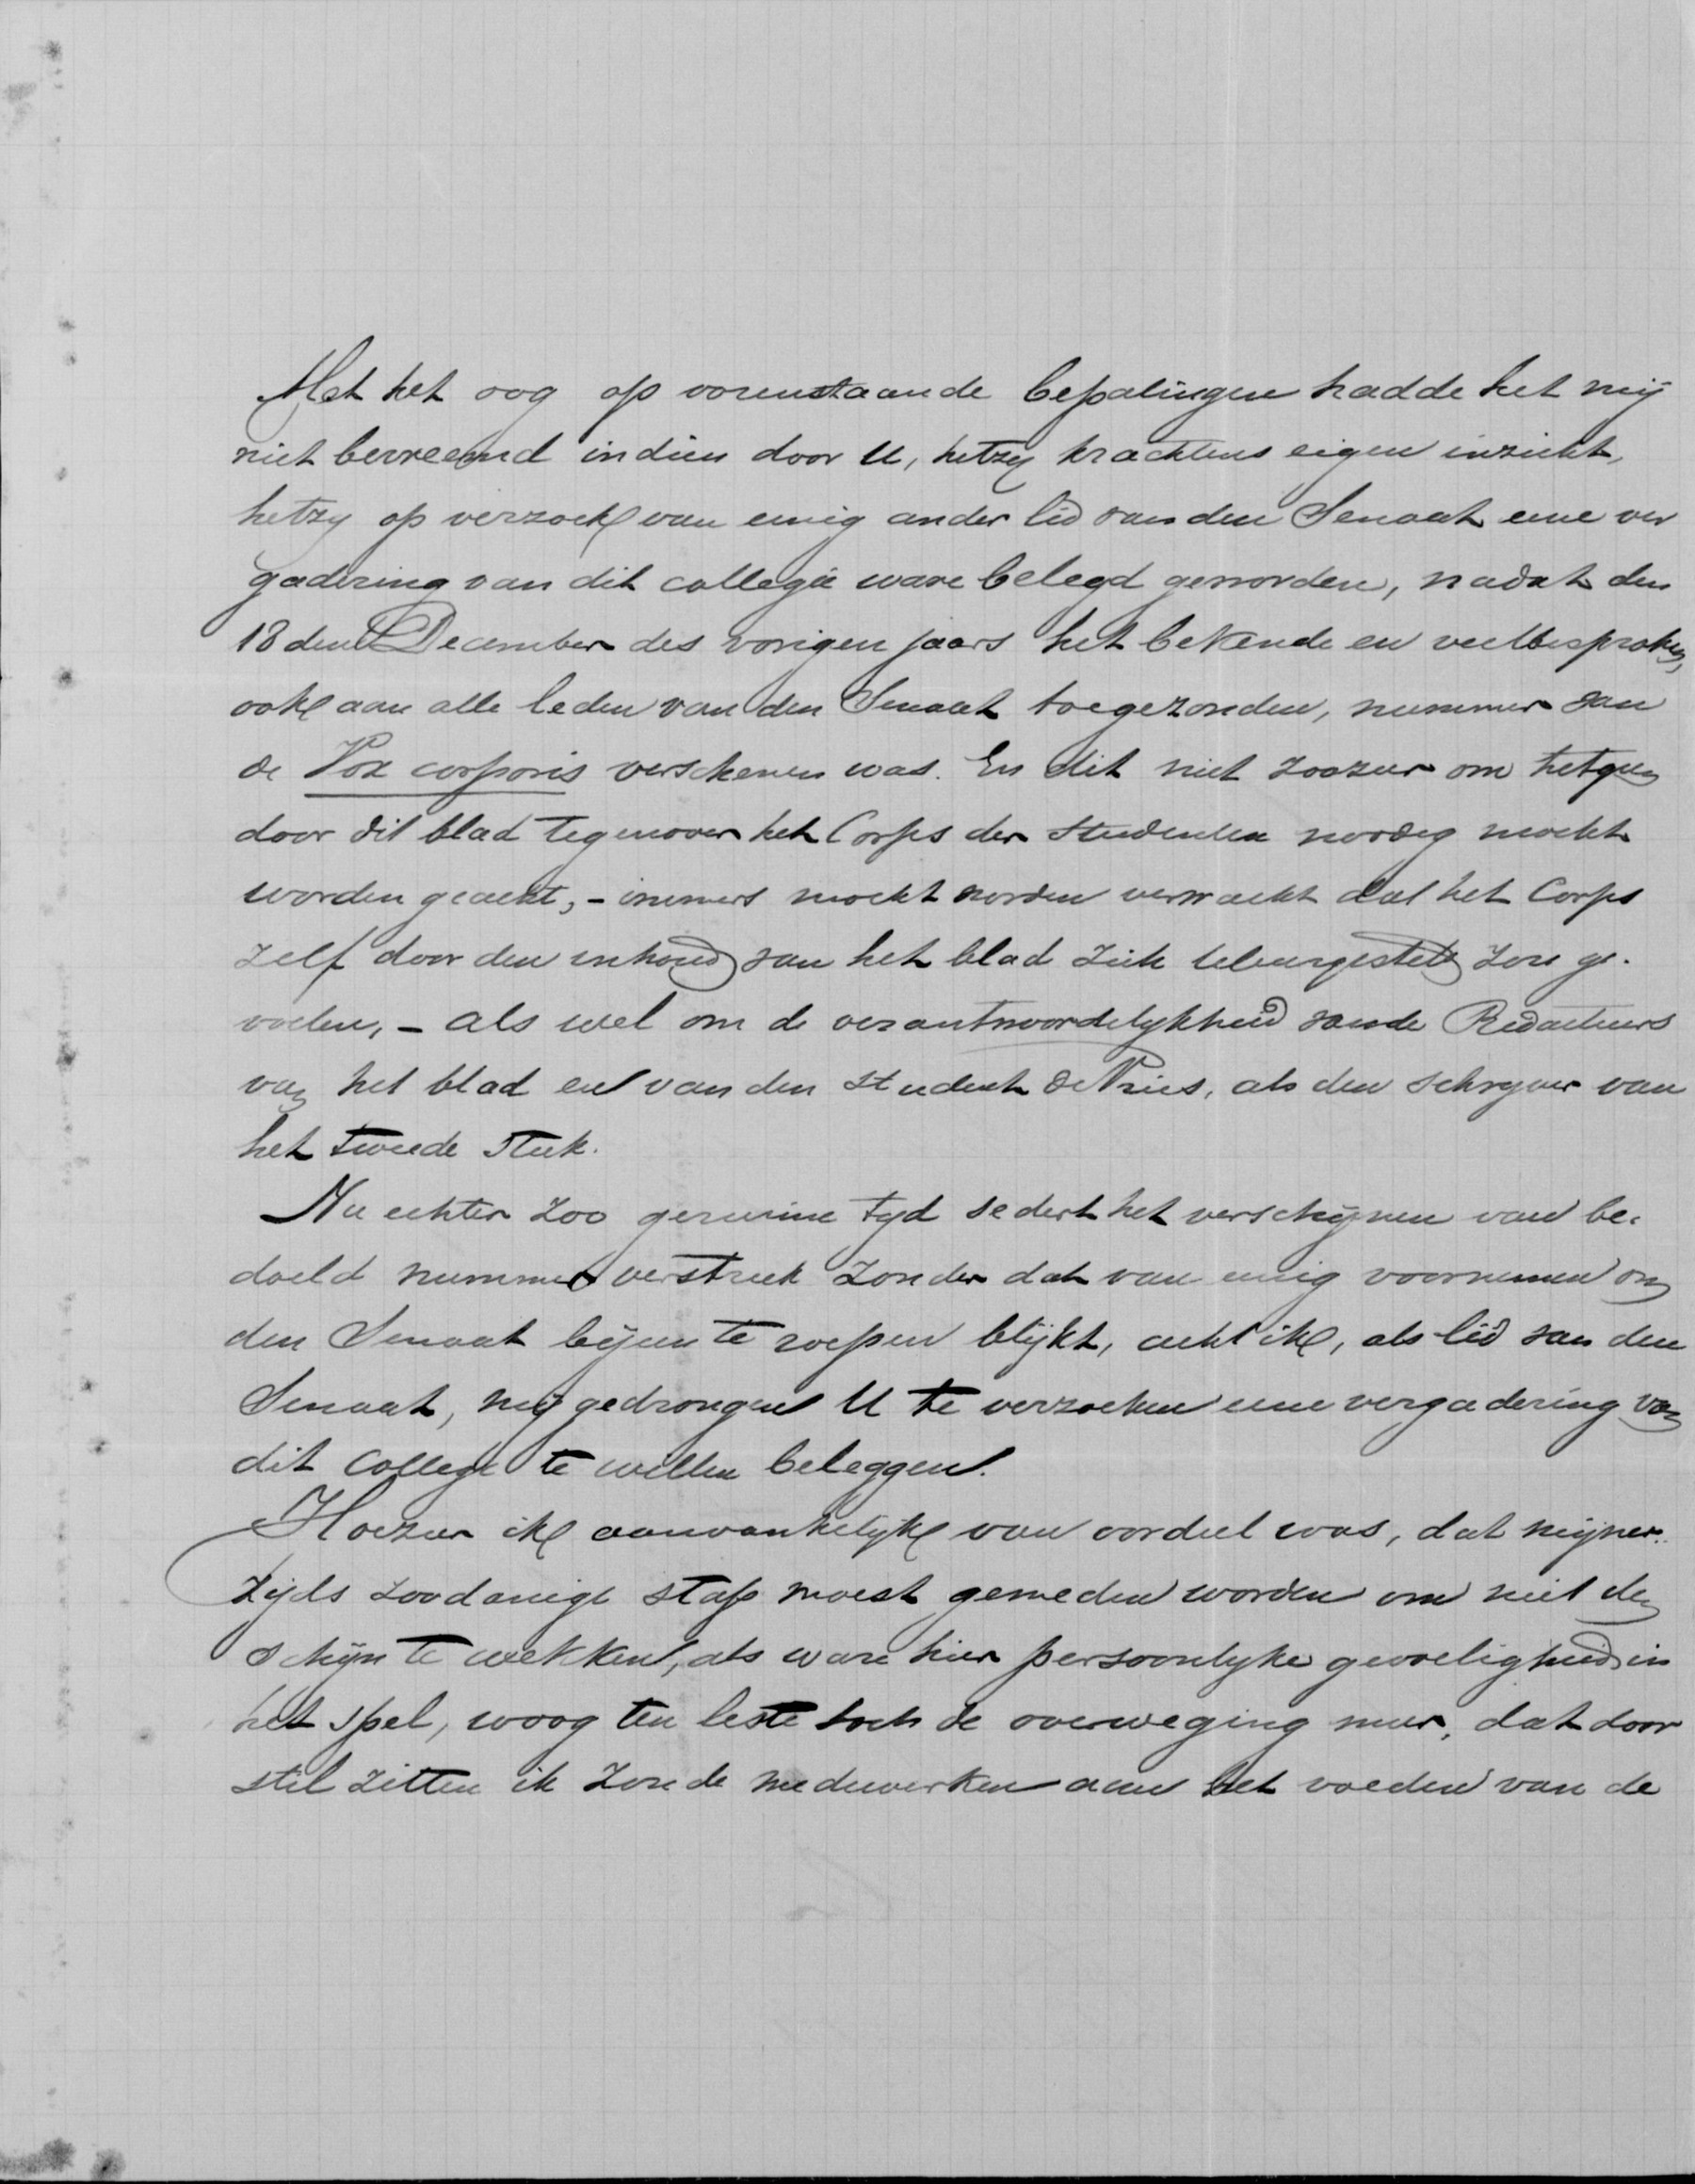 Met het oog op vorenstaande bepalingen hadde het mij
niet bevreemd indien door U, hetzy krachtens eigen inzicht,
hetzy op verzoek van eenig ander lid van den Senaat eene ver
gadering van dit college ware belegd geworden, nadat den
18den December des vorigen jaars het bekende en veelbesproken,
ook aan alle leden van den Senaat toegezonden, nummer van
de Vox corporis verschenen was. En dit niet zoozeer om hetgeen
door dit blad tegenover het Corps der Studenten noodig mocht
worden geacht, - immers mocht worden verwacht dat het Corps
zelf door den inhoud van het blad zich teleurgesteld zou ge-
voelen, - als wel om de verantwoordelykheid van de Redacteurs
van het blad en van den student de Vries, als den schryver van
het tweede stuk.
Nu echter zoo geruime tyd sedert het verschijnen van be-
doeld nummer verstreek zonder dat van eenig voornemen om
den Senaat bijeen te roepen blijkt, acht ik, als lid van den
Senaat, mij gedrongen U te verzoeken eene vergadering van
dit College te willen beleggen.
Hoezeer ik aanvankelijk van oordeel was, dat mijner-
zijds zoodanige stap moest gemeden worden om niet den
schijn te wekken, als ware hier persoonlyke gevoeligheid in
het spel, woog ten leste toch de overweging meer, dat door
stil zitten ik zoude medewerken aan het voeden van de